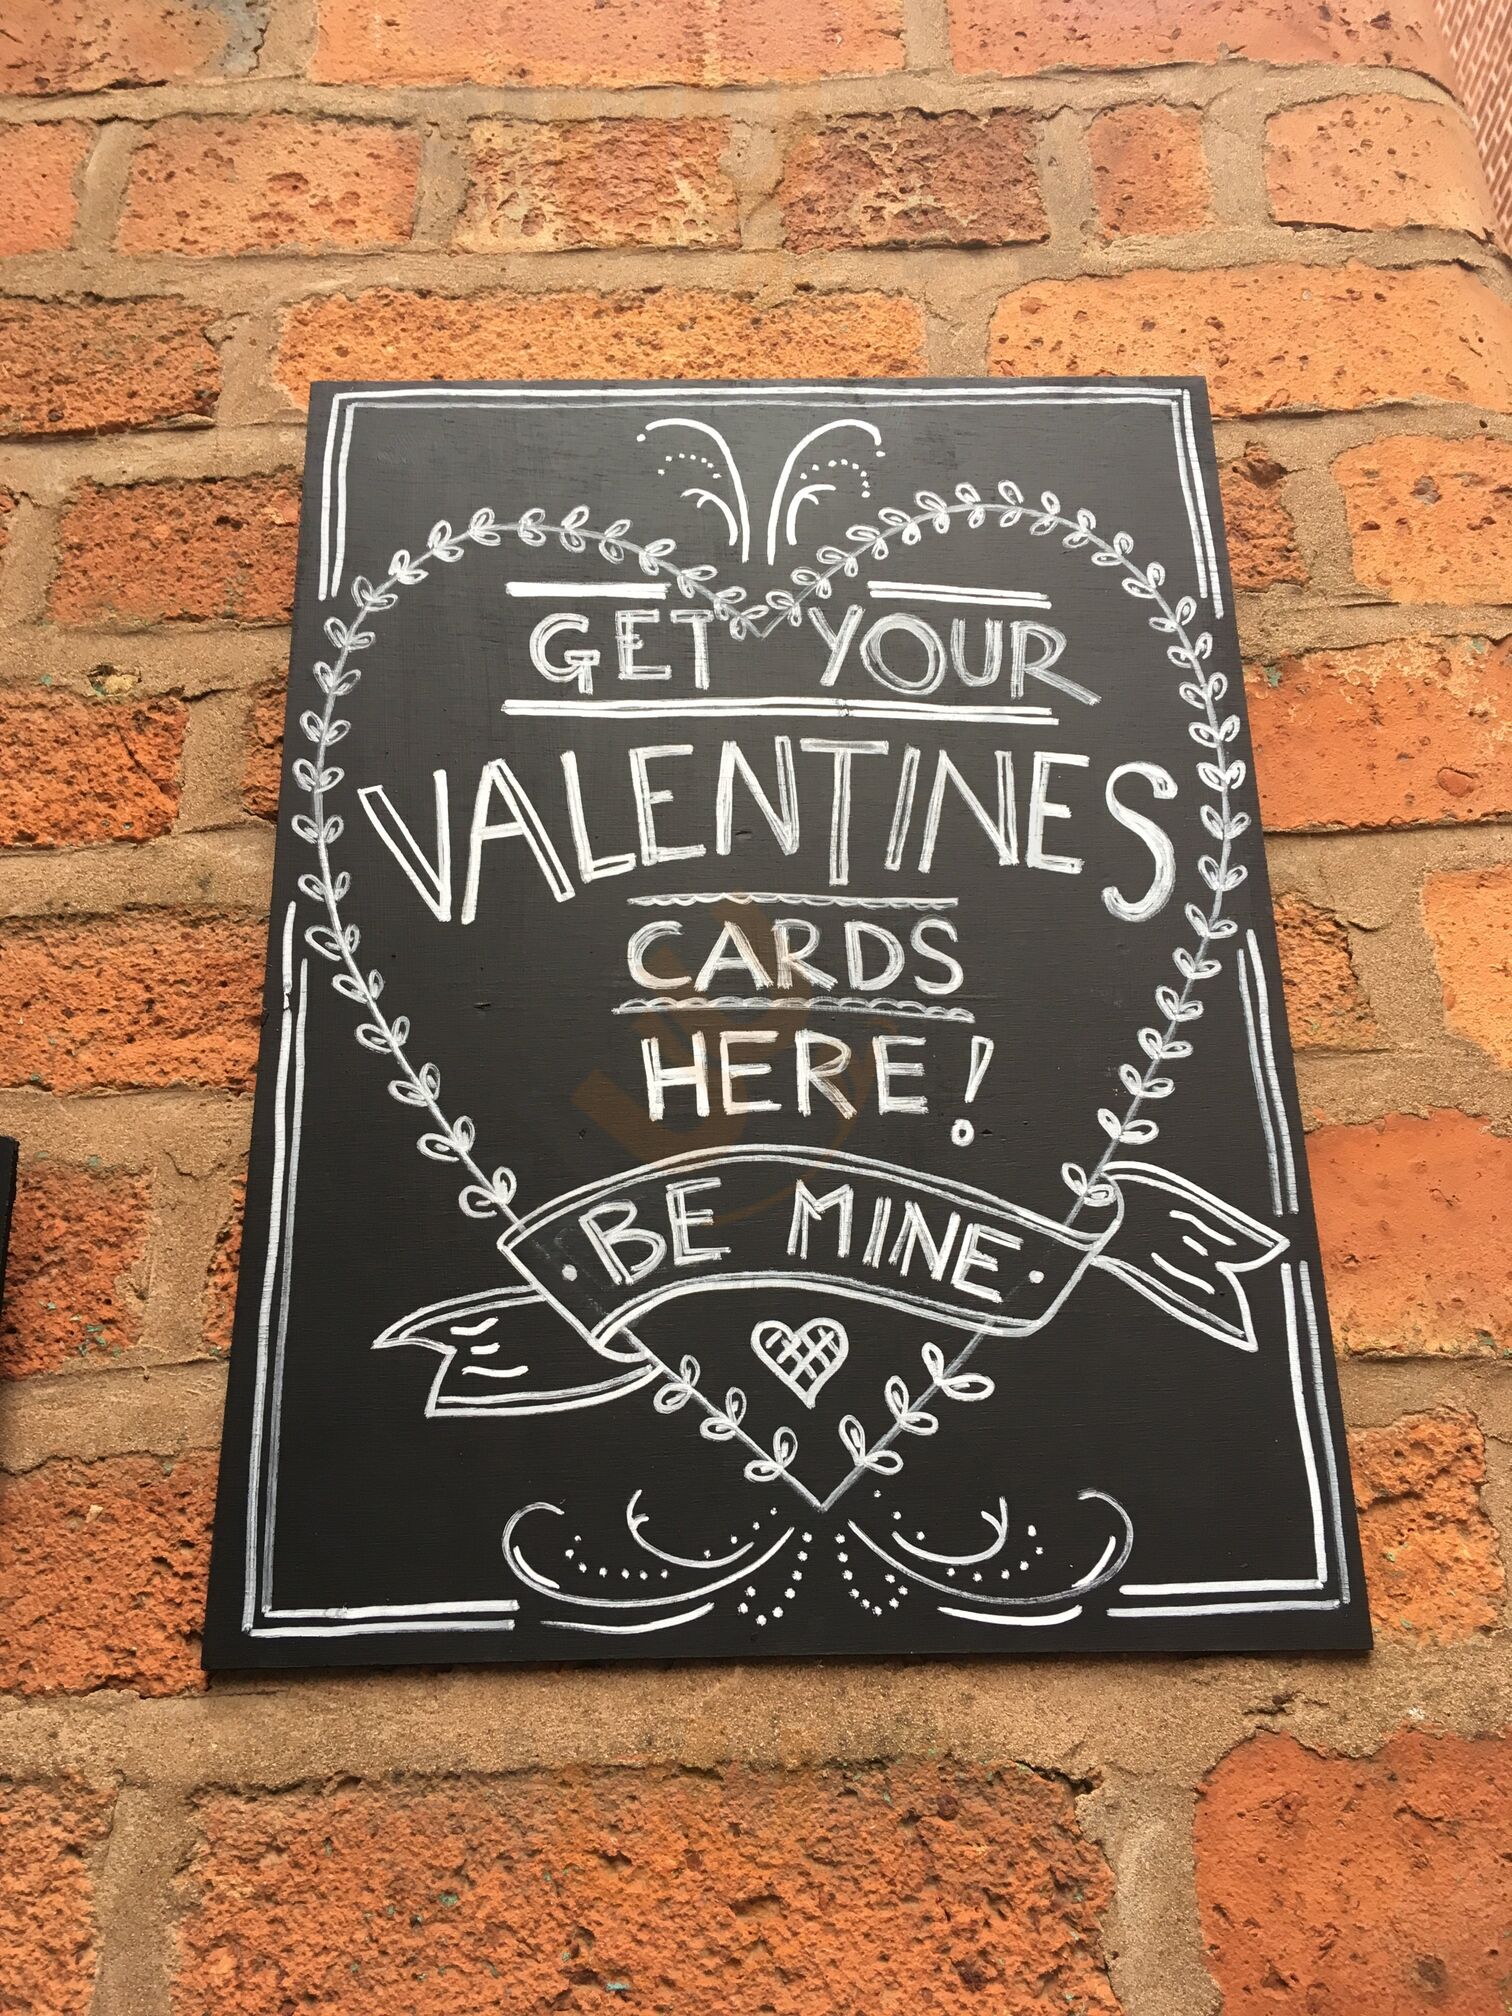 GET YOUR
VALENTINES
CARDS
HERE!
BE MINE